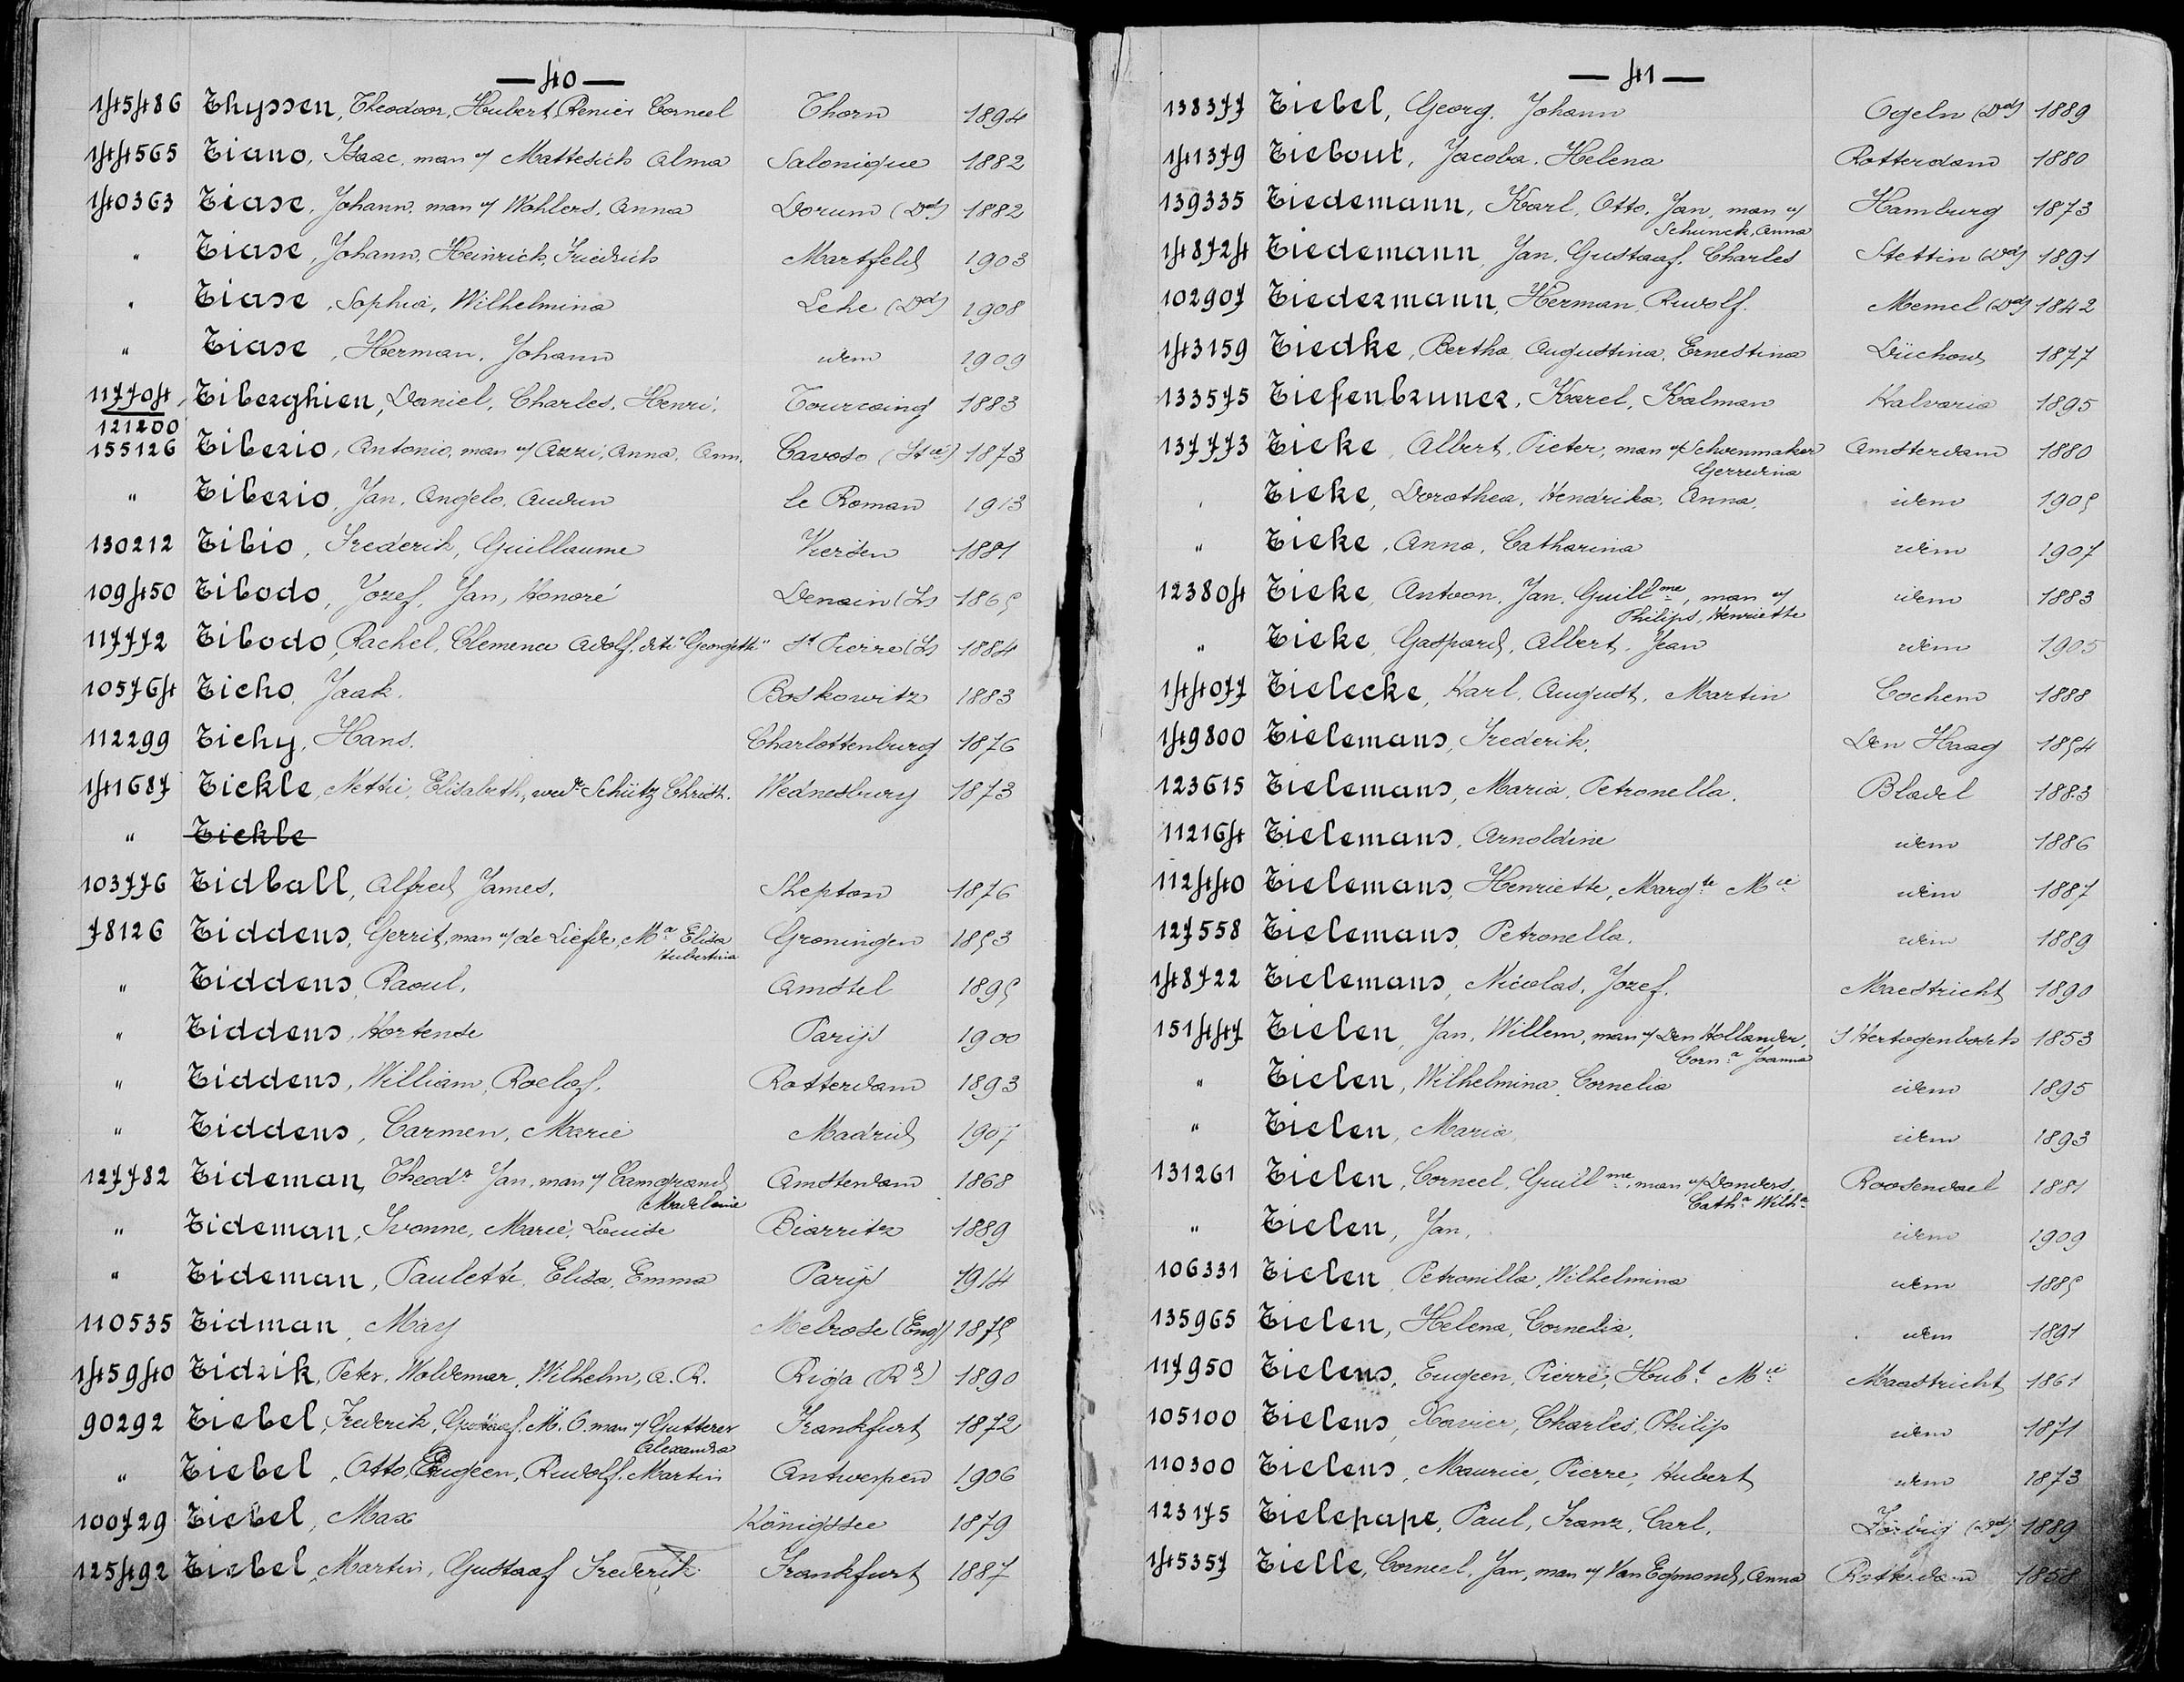 — 40 —
145486 Thyssen, Theodoor, Hubert, Renier Corneel Thorn 1894
144565 Tiano, Isaac, man v/ Mattesich Alma Salonique 1882
140363 Tiase, Johann, man v/ Wohlers, Anna Dorum (Dd) 1882
" Tiase, Johann, Heinrich, Friedrich Martfeld 1903
" Tiase, Sophia, Wilhelmina Lehe (Dd) 1908
" Tiase, Herman, Johann idem 1909
117704 Tiberghien, Daniel, Charles, Henri, Tourcoing 1883
121200
155126 Tiberio, Antonio, man v/ Azzi, Anna, Ann. Cavoso (It ië) 1873
" Tiberio, Jan, Angelo, le Roman 1913
130212 Tibio, Frederik, Guillaume Viersen 1881
109450 Tibodo, Jozef, Jan, Honoré Denain (Fs 1865
117772 Tibodo, Rachel, Clemence Adolf. dite "Georgette" St Pierre (Fs 1884
105764 Ticho, Jaak. Boskowitz 1883
112299 Tichy, Hans. Charlottenburg 1876
141687 Tickle, Nettie, Elisabeth, wed e Schütz Christ. Wednesbury 1873
" Tickle
103776 Tidball, Alfred James. Shepton 1876
78126 Tiddens, Gerrit, man v/ de Liefde, Ma Elisa Groningen 1853
Hubertina
" Tiddens, Raoul. Amstel 1895
" Tiddens, Hortense Parijs 1900
" Tiddens, William, Roelof. Rotterdam 1893
" Tiddens, Carmen, Marie Madrid 1907
127782 Tideman, Theodr Jan, man v/ Camogrand Amsterdam 1868
Madeleine
" Tideman, Ivonne, Marie, Louise Biarritz 1889
" Tideman, Paulette, Elisa, Emma Parijs 1914
110535 Tidman, May Melrose (Eng) 1875
145940 Tidrik, Peter, Woldemar, Wilhelm, A. R. Riga (Rd) 1890
90292 Tiebel, Frederik, Gustaaf, M. O. man v/ Gutterer Frankfurt 1872
Alexandra
" Tiebel, Otto, Eugeen, Rudolf, Martin Antwerpen 1906
100729 Tiebel, Max Königssee 1879
125492 Tiebel, Martin, Gustaaf Frederik Frankfurt 1887
— 41 —
138377 Tiebel, Georg, Johann Ogeln (Dd) 1889
141379 Tiebout, Jacoba, Helena Rotterdam 1880
139335 Tiedemann, Karl, Otto, Jan, man v/ Hamburg 1873
Schunck, Anna
148724 Tiedemann, Jan, Gustaaf, Charles Stettin (Dd) 1891
102907 Tiedermann, Herman, Rudolf. Memel (Dd) 1842
143159 Tiedke, Bertha, Augustina, Ernestina Lüchow 1877
133575 Tiefenbruner, Karel, Kalman Kalvaria 1895
137773 Tieke, Albert, Pieter, man v/ Schoenmaker Amsterdam 1880
Gerredina
" Tieke, Dorothea, Hendrika, Anna, idem 1905
" Tieke, Anna, Catharina idem 1907
123804 Tieke, Antoon, Jan, Guillme, man v/ idem 1883
Philips, Henriette
" Tieke, Gaspard, Albert, Jean idem 1905
144077 Tielecke, Karl, August, Martin Cochem 1888
149800 Tielemans, Frederik. Den Haag 1854
123615 Tielemans, Maria, Petronella. Bladel 1883
112164 Tielemans, Arnoldine idem 1886
112440 Tielemans, Henriette, Margte Mie idem 1887
127558 Tielemans, Petronella. idem 1889
148722 Tielemans, Nicolas, Jozef. Maestricht 1890
151447 Tielen, Jan, Willem, man v/ Den Hollander, S Hertogenbosch 1853
Corna Joanna
" Tielen, Wilhelmina, Cornelia idem 1895
" Tielen, Maria, idem 1893
131261 Tielen, Corneel, Guillme, man v/ Donders, Roosendael 1881
Catha Wilha
" Tielen, Jan, idem 1909
106331 Tielen, Petronilla, Wilhelmina idem 1885
135965 Tielen, Helena, Cornelia, idem 1891
117950 Tielens, Eugeen, Pierre, Hubt Mie Maastricht 1861
105100 Tielens, Xavier, Charles, Philip idem 1871
110300 Tielens, Maurice, Pierre, Hubert idem 1873
123175 Tielepape, Paul, Franz, Carl, Zörbig (Dd) 1889
145357 Tielle, Corneel, Jan, man v/ Van Egmond, Anna Rotterdam 1858